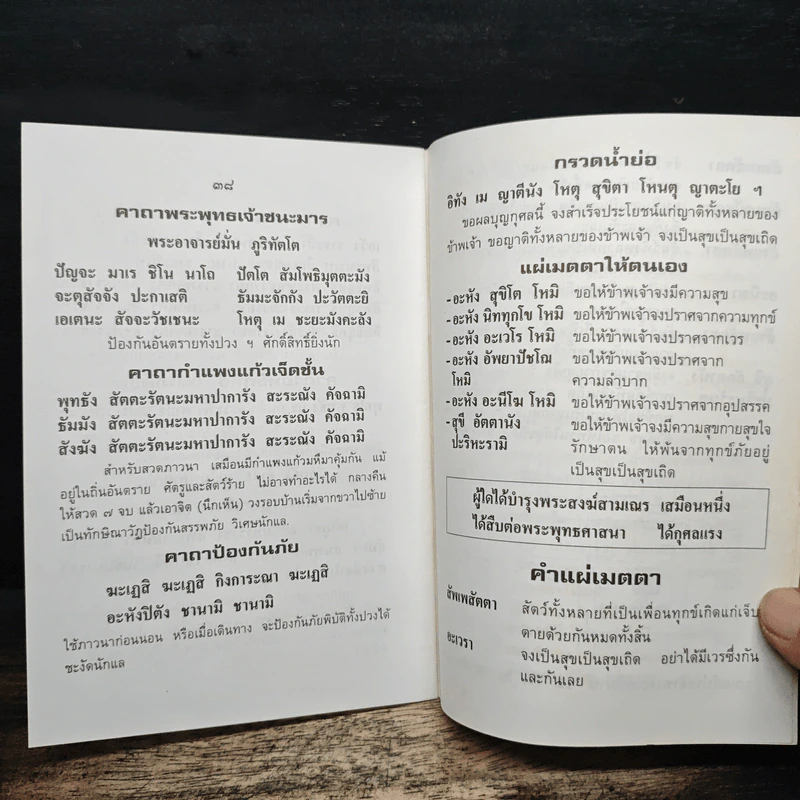 ๓๘
คาถาพระพุทธเจ้าชนะมาร
พระอาจารย์มั่น ภูริทัตโต
ปัญจะ มาเร ชิโน นาโถ ปัตโต สัมโพธิมุตตะมัง
จะตุสัจจัง ปะกาเสติ ธัมมะจักกัง ปะวัตตะยิ
เอเตนะ สัจจะวัชเชนะ โหตุ เม ชะยะมังคะลัง
ป้องกันอันตรายทั้งปวง ฯ ศักดิ์สิทธิ์ยิ่งนัก
คาถากำแพงแก้วเจ็ดชั้น
พุทธัง สัตตะรัตนะมหาปาการัง สะระณัง คัจฉามิ
ธัมมัง สัตตะรัตนะมหาปาการัง สะระณัง คัจฉามิ
สังฆัง สัตตะรัตนะมหาปาการัง สะระณัง คัจฉามิ
สำหรับสวดภาวนา เสมือนมีกำแพงแก้วมหึมาคุ้มกัน แม้
อยู่ในถิ่นอันตราย ศัตรูและสัตว์ร้าย ไม่อาจทำอะไรได้ กลางคืน
ให้สวด ๗ จบ แล้วเอาจิต (นึกเห็น) วงรอบบ้านเริ่มจากขวาไปซ้าย
เป็นทักษิณาวัฏป้องกันสรรพภัย วิเศษนักแล.
คาถาป้องกันภัย
ฆะเฏสิ ฆะเฏสิ กิงการะณา ฆะเฏสิ
อะหังปิตัง ชานามิ ชานามิ
ใช้ภาวนาก่อนนอน หรือเมื่อเดินทาง จะป้องกันภัยพิบัติทั้งปวงได้
ชะงัดนักแล
กรวดน้ำย่อ
อิทัง เม ญาตีนัง โหตุ สุขิตา โหนตุ ญาตะโย ฯ
ขอผลบุญกุศลนี้ จงสำเร็จประโยชน์แก่ญาติทั้งหลายของ
ข้าพเจ้า ขอญาติทั้งหลายของข้าพเจ้า จงเป็นสุขเป็นสุขเถิด
แผ่เมตตาให้ตนเอง
-อะหัง สุขิโต โหมิ ขอให้ข้าพเจ้าจงมีความสุข
-อะหัง นิททุกโข โหมิ ขอให้ข้าพเจ้าจงปราศจากความทุกข์
-อะหัง อะเวโร โหมิ ขอให้ข้าพเจ้าจงปราศจากเวร
-อะหัง อัพยาปัชโฌ ขอให้ข้าพเจ้าจงปราศจาก
โหมิ ความลำบาก
-อะหัง อะนีโฆ โหมิ ขอให้ข้าพเจ้าจงปราศจากอุปสรรค
-สุขี อัตตานัง ขอให้ข้าพเจ้าจงมีความสุขกายสุขใจ
ปะริหะรามิ รักษาตน ให้พ้นจากทุกข์ภัยอยู่
เป็นสุขเป็นสุขเถิด
ผู้ใดได้บำรุงพระสงฆ์สามเณร เสมือนหนึ่ง
ได้สืบต่อพระพุทธศาสนา ได้กุศลแรง
คำแผ่เมตตา
สัพเพสัตตา สัตว์ทั้งหลายที่เป็นเพื่อนทุกข์เกิดแก่เจ็บ
ตายด้วยกันหมดทั้งสิ้น
อะเวรา จงเป็นสุขเป็นสุขเถิด อย่าได้มีเวรซึ่งกัน
และกันเลย